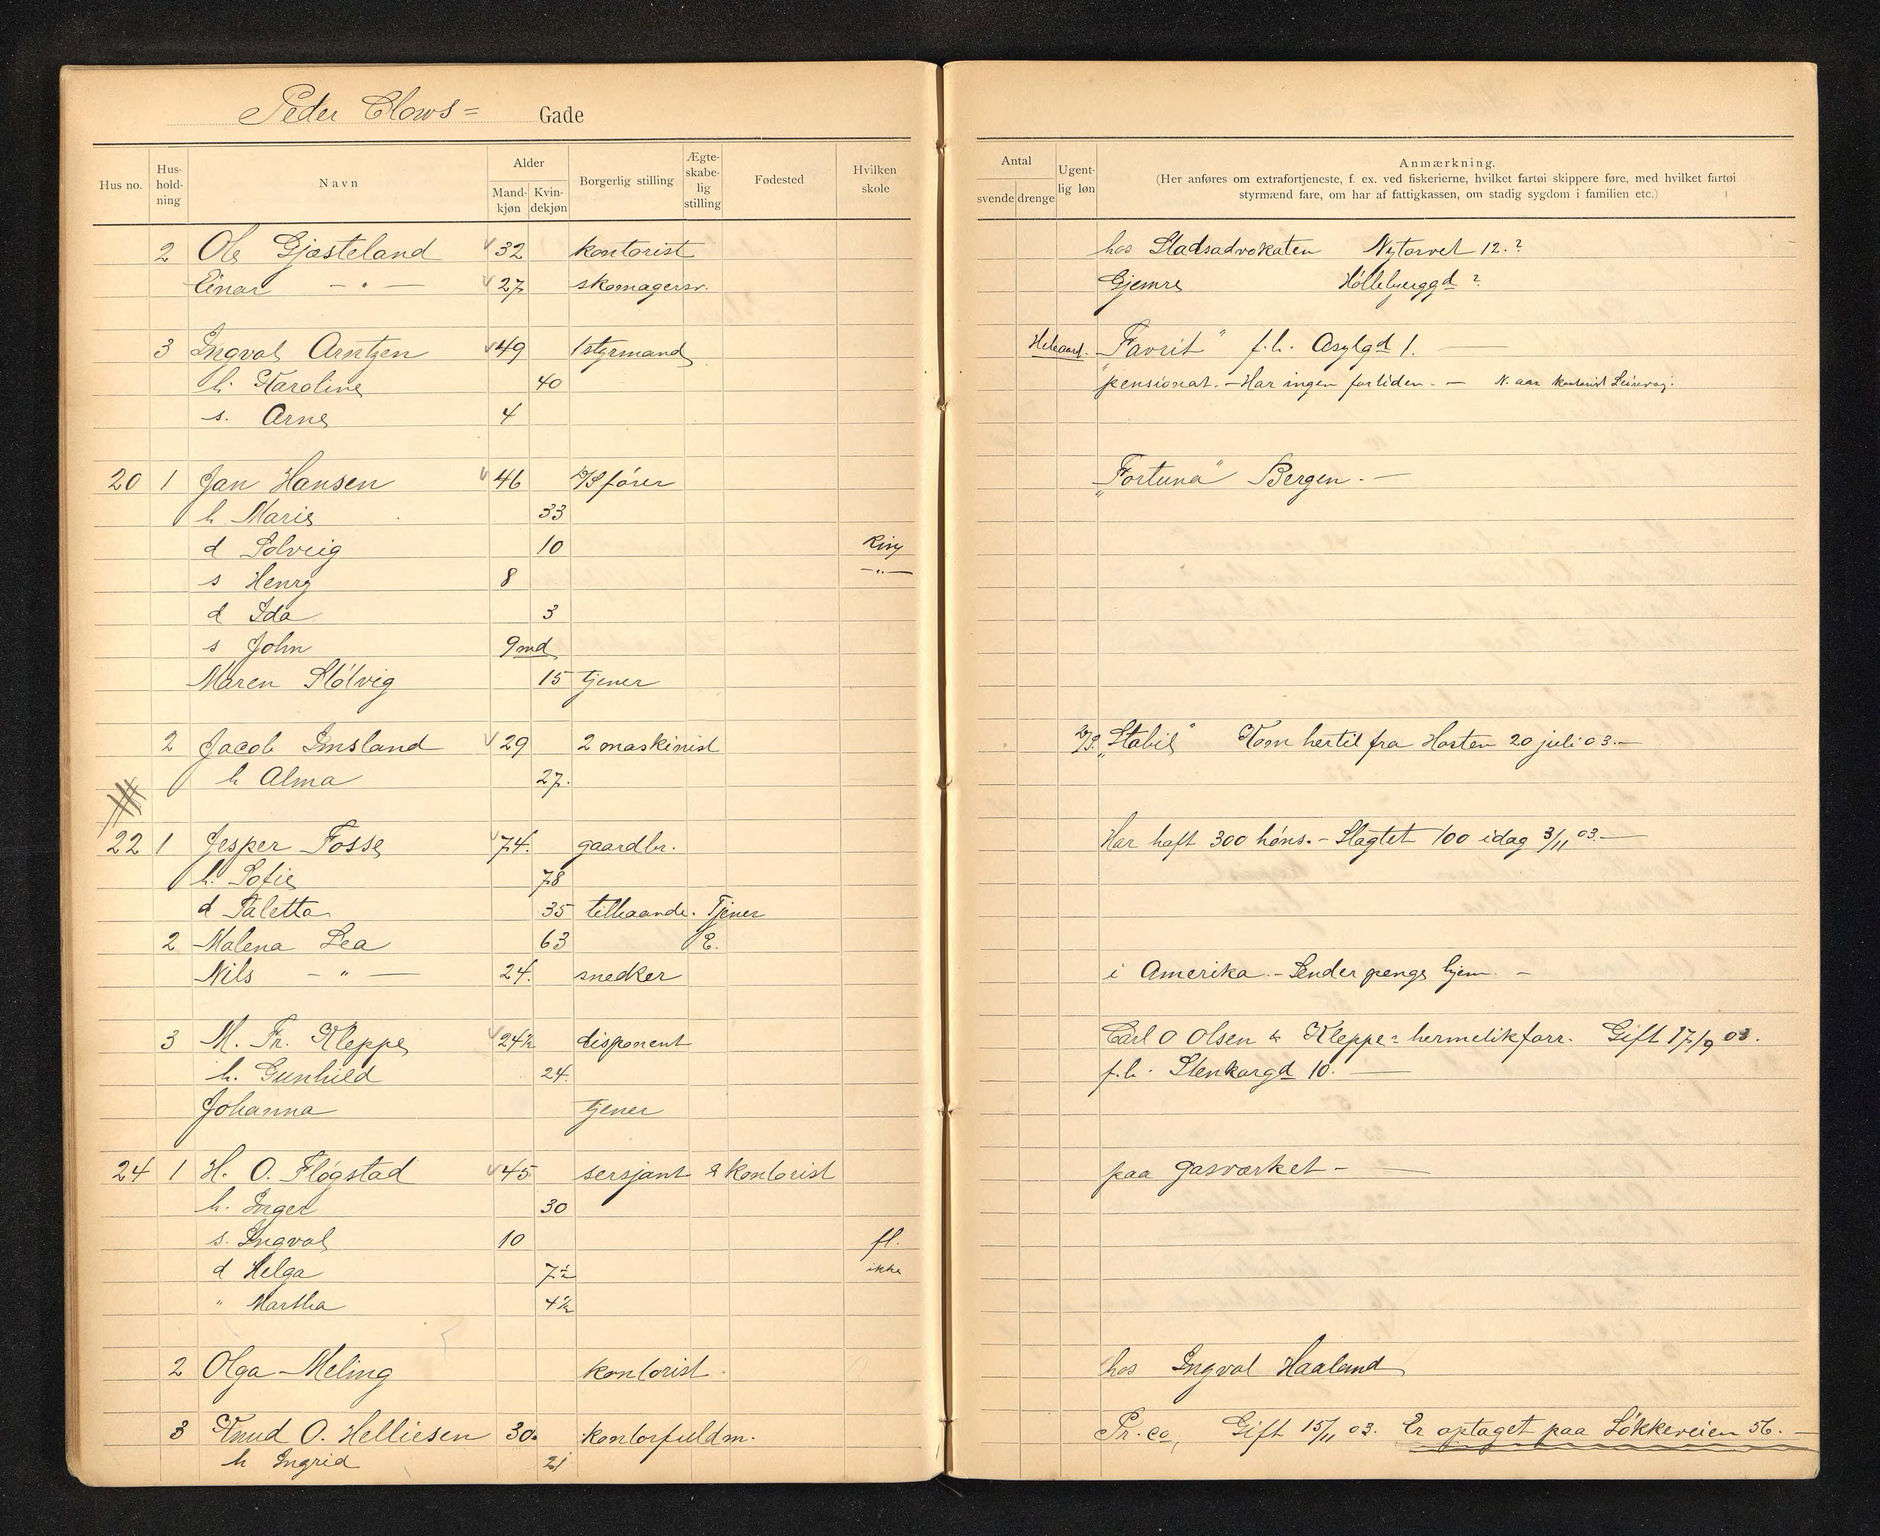 Peder Clows= Gade
Hus no. Hus-hold-ning Navn Alder Mand-kjøn Kvin-dekjøn Borgerlig stilling Ægte-skabe-lig stilling Fødested Hvilken skole
Antal svende drenge Ugent-lig løn Anmærkning.
(Her anføres om extrafortjeneste, f. ex. ved fiskerierne, hvilket fartøi skippere føre, med hvilket fartøi
styrmænd fare, om har af fattigkassen, om stadig sygdom i familien etc.)
2 Ole Gjæsteland 32 kontorist hos Stadsadvokaten Nytorvet 12.?
Einar — " — 27 skomagersv. Gjemre ?
3 Ingval Arntzen 49 1 styrmand "Favrit" f.h. Asylgd 1. —
h. Karoline 40 pensionat. – Har ingen for tiden. —
s. Arne 4
20 1 Jan Hansen 46 D/S fører "Fortuna" Bergen. —
h Marie 33
d Solveig 10
s Henry 8 — " —
d Ida 3
s John 9 md
Maren Stølvig 15 tjener
2 Jacob Imsland 29 2 maskinist D/S. "Stabil" Kom hertil fra Horten 20 juli 03. —
h Alma 27.
22 1 Jesper Fosse 74. gaardbr. Har haft 300 høns. – Slagtet 100 idag 3/11 03. —
h. Sofie 78
d Taletta 35 tilhaande. Tjener
2 Malena Lea 63 E.
Nils — " — 24. snedker i Amerika. – Sender penge hjem. –
3 M. Fr. Kleppe 24½ disponent Carl O Olsen & Kleppes hermetikforr. Gift 17/9 03.
h. Gunhild 24. f.h. Stenkargd 10. —
Johanna tjener
24 1 H. O. Fløgstad 45 sersjant & kontorist paa gasværket – —
h. Inger 30
s. Ingval 10 fl.
d Helga 7½ ikke
" Martha 4½
2 Olga Meling kontorist. hos Ingval Haaland
3 Knud O. Helliesen 30. kontorfuldm. Pr. co, Gift 15/11 03. Er optaget paa Løkkeveien 56. —
h Ingrid 21